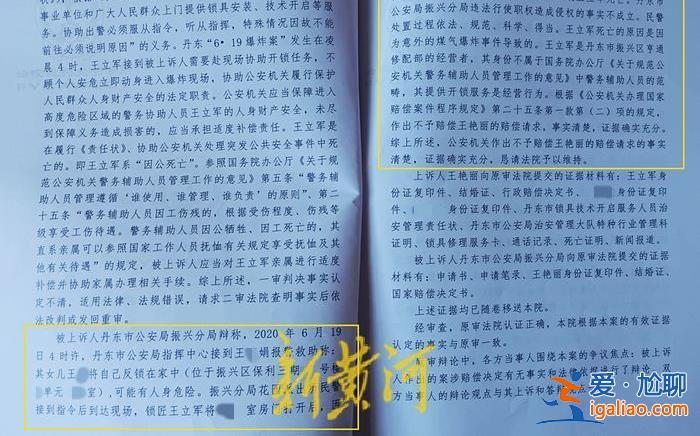 事业单位和广大人民群众上门提供锁具安装、技术开启等服
务。协助出警必须服从指令，听从指挥，特殊情况因故不能
前往必须说明原因”的义务。丹东“6·19爆炸案”发生在凌
晨4时，王立军接到被上诉人需要赴现场协助开锁任务，不
顾个人安危立即动身进入爆炸现场，协助公安机关履行保护
人民群众人身财产安全的法定职责。公安机关应当保障进入
高度危险区域的警务协助人员王立军的人身财产安全，未尽
到保障义务造成损害的，应当承担适补偿责任。王立军是
在履行《责任状》、协助公安机关处理突发公共安全事件中死
亡的。即王立军系“因公死亡”。参照国务院办公厅《关于规
范公安机关警务辅助人员管理工作的意见》第五条“警务辅
助人员管理遵循‘谁使用、谁管理、谁负责’的原则”、第二
十五条“警务辅助人员因工伤残的，根据受伤程度、伤残等
级享受工伤待遇。警务辅助人员因公牺牲、因工死亡的，其
直系亲属可以参照国家工作人员抚恤有关规定享受抚恤及其
他有关待遇”的规定，被上诉人应当对王立军亲属进行适度
补偿并协助家属办理相关手续。综上所述，一审判决事实认
定不清，适用法律、法规错误，请求二审法院查明事实后依
法改判或发回重审。
被上诉人丹东市公安局振兴分局辩称，2020年6月19
日4时许，丹东市公安局指挥中心接到王 娟报警救助称：
其女儿王 将自己反锁在家中（位于振兴区保利三期 号楼
单元 室），可能有人身危险。振兴分局花园派出所民警
接到指令后到达现场，锁匠王立军将 室房门打开后，
公安局振兴分局违法行使职权造成侵权的事实不成立。民警
处置过程依法、规范、科学、得当。王立军死亡的原因是因
为意外的煤气爆炸事件导致的。王立军是丹东市振兴区亨通
修配部的经营者，其身份不属于国务院办公厅《关于规范公
安机关警务辅助人员管理工作的意见》中警务辅助人员的范
畴，其提供开锁服务是经营行为。根据《公安机关办理国家
赔偿案件程序规定》第二十五条第一款第（二）项的规定，
作出不予赔偿王艳丽的赔偿请求，事实清楚，证据确实充分。
综上所述，公安机关作出不予赔偿王艳丽的赔偿请求的事实
清楚，证据确实充分，恳请法院予以维持。
上诉人王艳丽向原审法院提交的证据材料有：王艳丽身
份证复印件、结婚证、行政赔偿决定书、 身份证复印
件、 身份证复印件、丹东市锁具技术开启服务人员治
安管理责任状、丹东市公安局治安管理大队特种行业管理科
证明、锁具修理服务卡、通话记录、死亡证明、新闻报道。
被上诉人丹东市公安局振兴分局向原审法院提交的证据
材料有：申请书、申请笔录、王艳丽身份证复印件、结婚证、
国家赔偿决定书。
上述证据均已随卷移送本院。
经审查，原审法院认证正确，本院根据本案的有效证据
认定的事实与原审一致。
审辩论中，各方当事人围绕本案争议焦点：被上诉
人作出的案涉赔偿决定有无事实和法律依据进行了辩论，双
方当事人的辩论观点与其上诉和答辩
新黄河
爱·尬聊
www.ingaliao.com